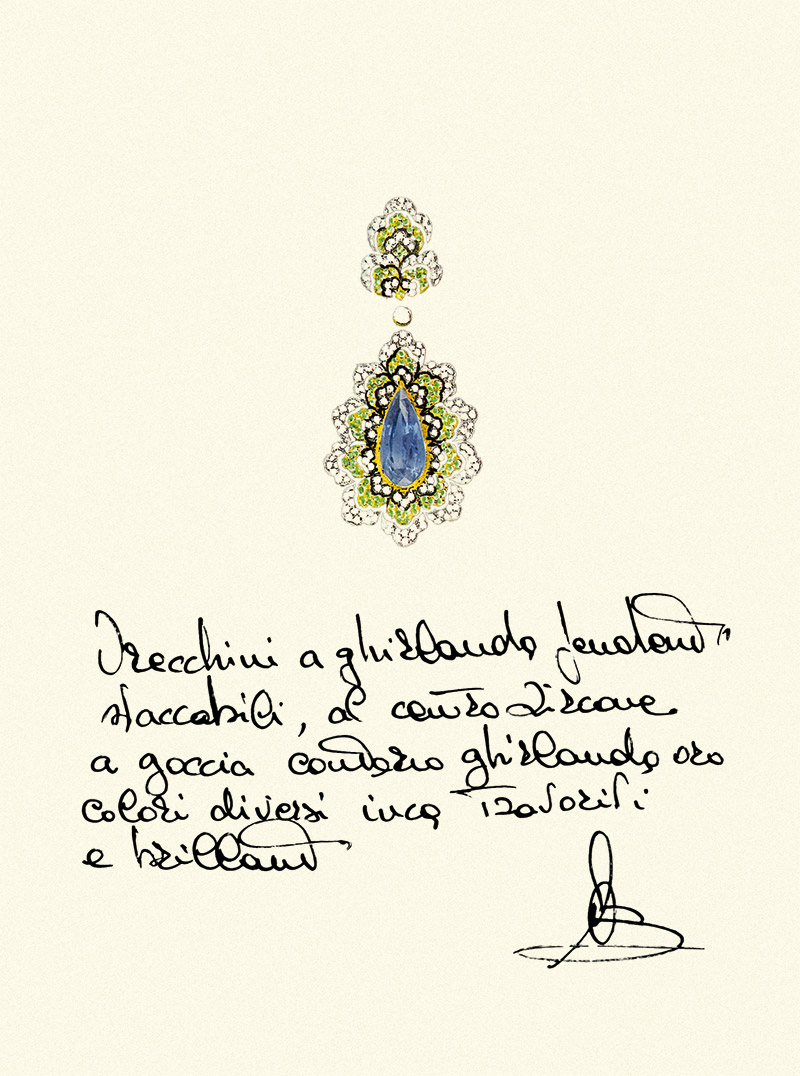 Orecchini a ghirlanda pendant
staccabili, al centro Zircone
a goccia contorno ghirlanda oro
colori diversi inca Tzavoriti
e brillant